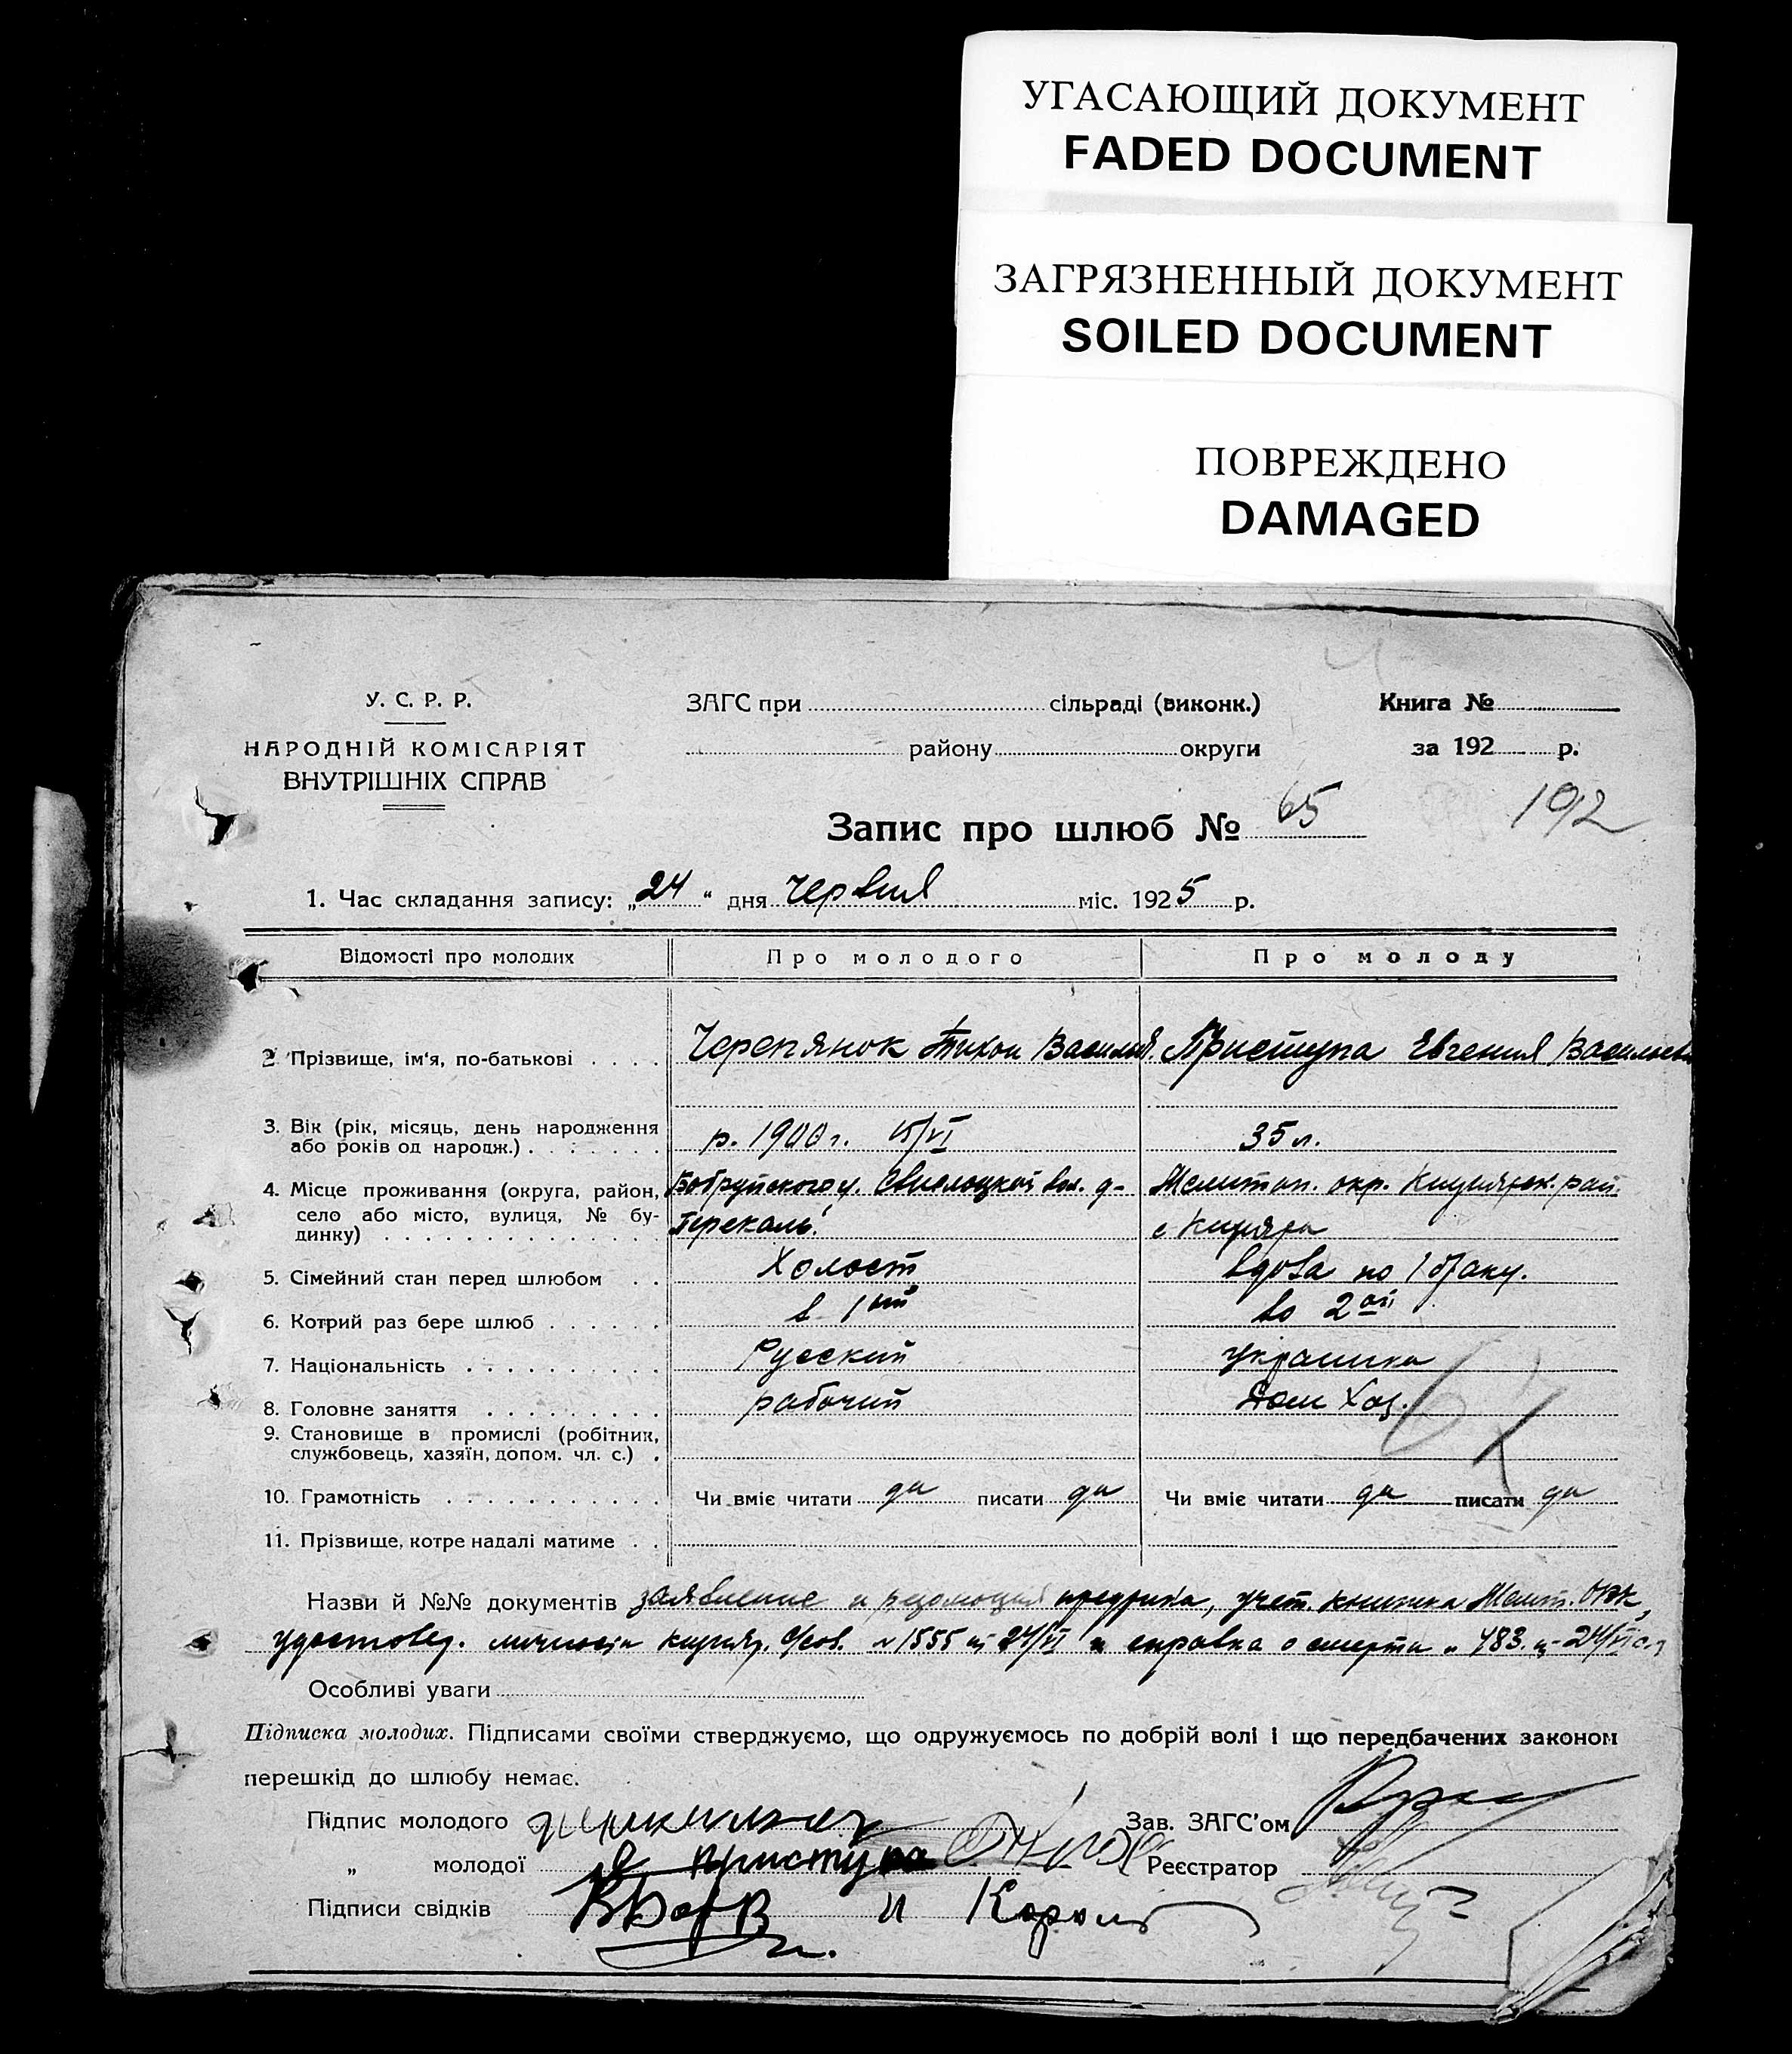 УГАСАЮЩИЙ ДОКУМЕНТ
FADED DOCUMENT
ЗАГРЯЗНЕННЫЙ ДОКУМЕНТ
SOILED DOCUMENT
ПОВРЕЖДЕНО
DAMAGED
У. С. Р. Р.
НАРОДНІЙ КОМІСАРІЯТ
ВНУТРІШНІХ СПРАВ
ЗАГС при сільраді (виконк.)
району округи
Книга №
за 192 р.
192
Запис про шлюб № 65
1. Час складання запису: „24“ дня червня міс. 1925 р.
Відомості про молодих Про молодого Про молоду
2. Прізвище, ім'я, по-батькові Черепянок Тихон Василий. Приступа Евгения Васильев
3. Вік (рік, місяць, день народження р. 1900 г. 15/VI 35 л.
або років од народж.)
4. Місце проживання (округа, район, Бобруйского у. Свислоцкой вол. д- Мелитоп. окр. рай.
село або місто, вулиця, № бу- с
динку)
5. Сімейний стан перед шлюбом Холост вдова по 1 браку.
6. Котрий раз бере шлюб в 1ый во 2ой
7. Національність Русский украинка
8. Головне заняття рабочий Дом Хоз.
9. Становище в промислі (робітник,
службовець, хазяїн, допом. чл. с.)
10. Грамотність Чи вміє читати да писати да Чи вміє читати да писати да
11. Прізвище, котре надалі матиме
Назви й №№ документів заявление и резолюция учет. книжка Мелит.
удостовер. личности №1555 24/VI и справка о смерти 483. 24/VI
Особливі уваги
Підписка молодих. Підписами своїми стверджуємо, що одружуємось по добрій волі і що передбачених законом
перешкід до шлюбу немає.
Підпис молодого Зав. ЗАГС'ом
„ молодої приступа Реєстратор
Підписи свідків и